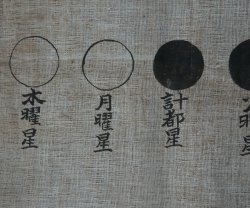 計都星
月曜星
木曜星